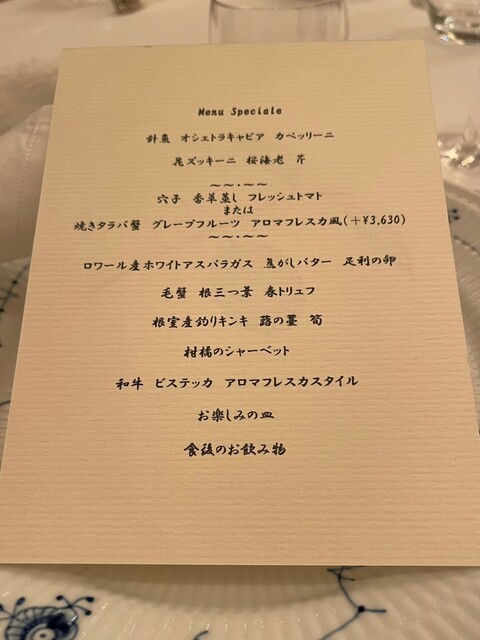 Menu Speciale
針魚 オシェトラキャビア カペッリーニ
花ズッキーニ 桜海老 芹
～～・～～
穴子 香草蒸し フレッシュトマト
または
焼きタラバ蟹 グレープフルーツ アロマフレスカ風(＋¥3,630)
～～・～～
ロワール産ホワイトアスパラガス 焦がしバター 足利の卵
毛蟹 根三つ葉 春トリュフ
根室産釣りキンキ 蕗の薹 筍
柑橘のシャーベット
和牛 ビステッカ アロマフレスカスタイル
お楽しみの皿
食後のお飲み物